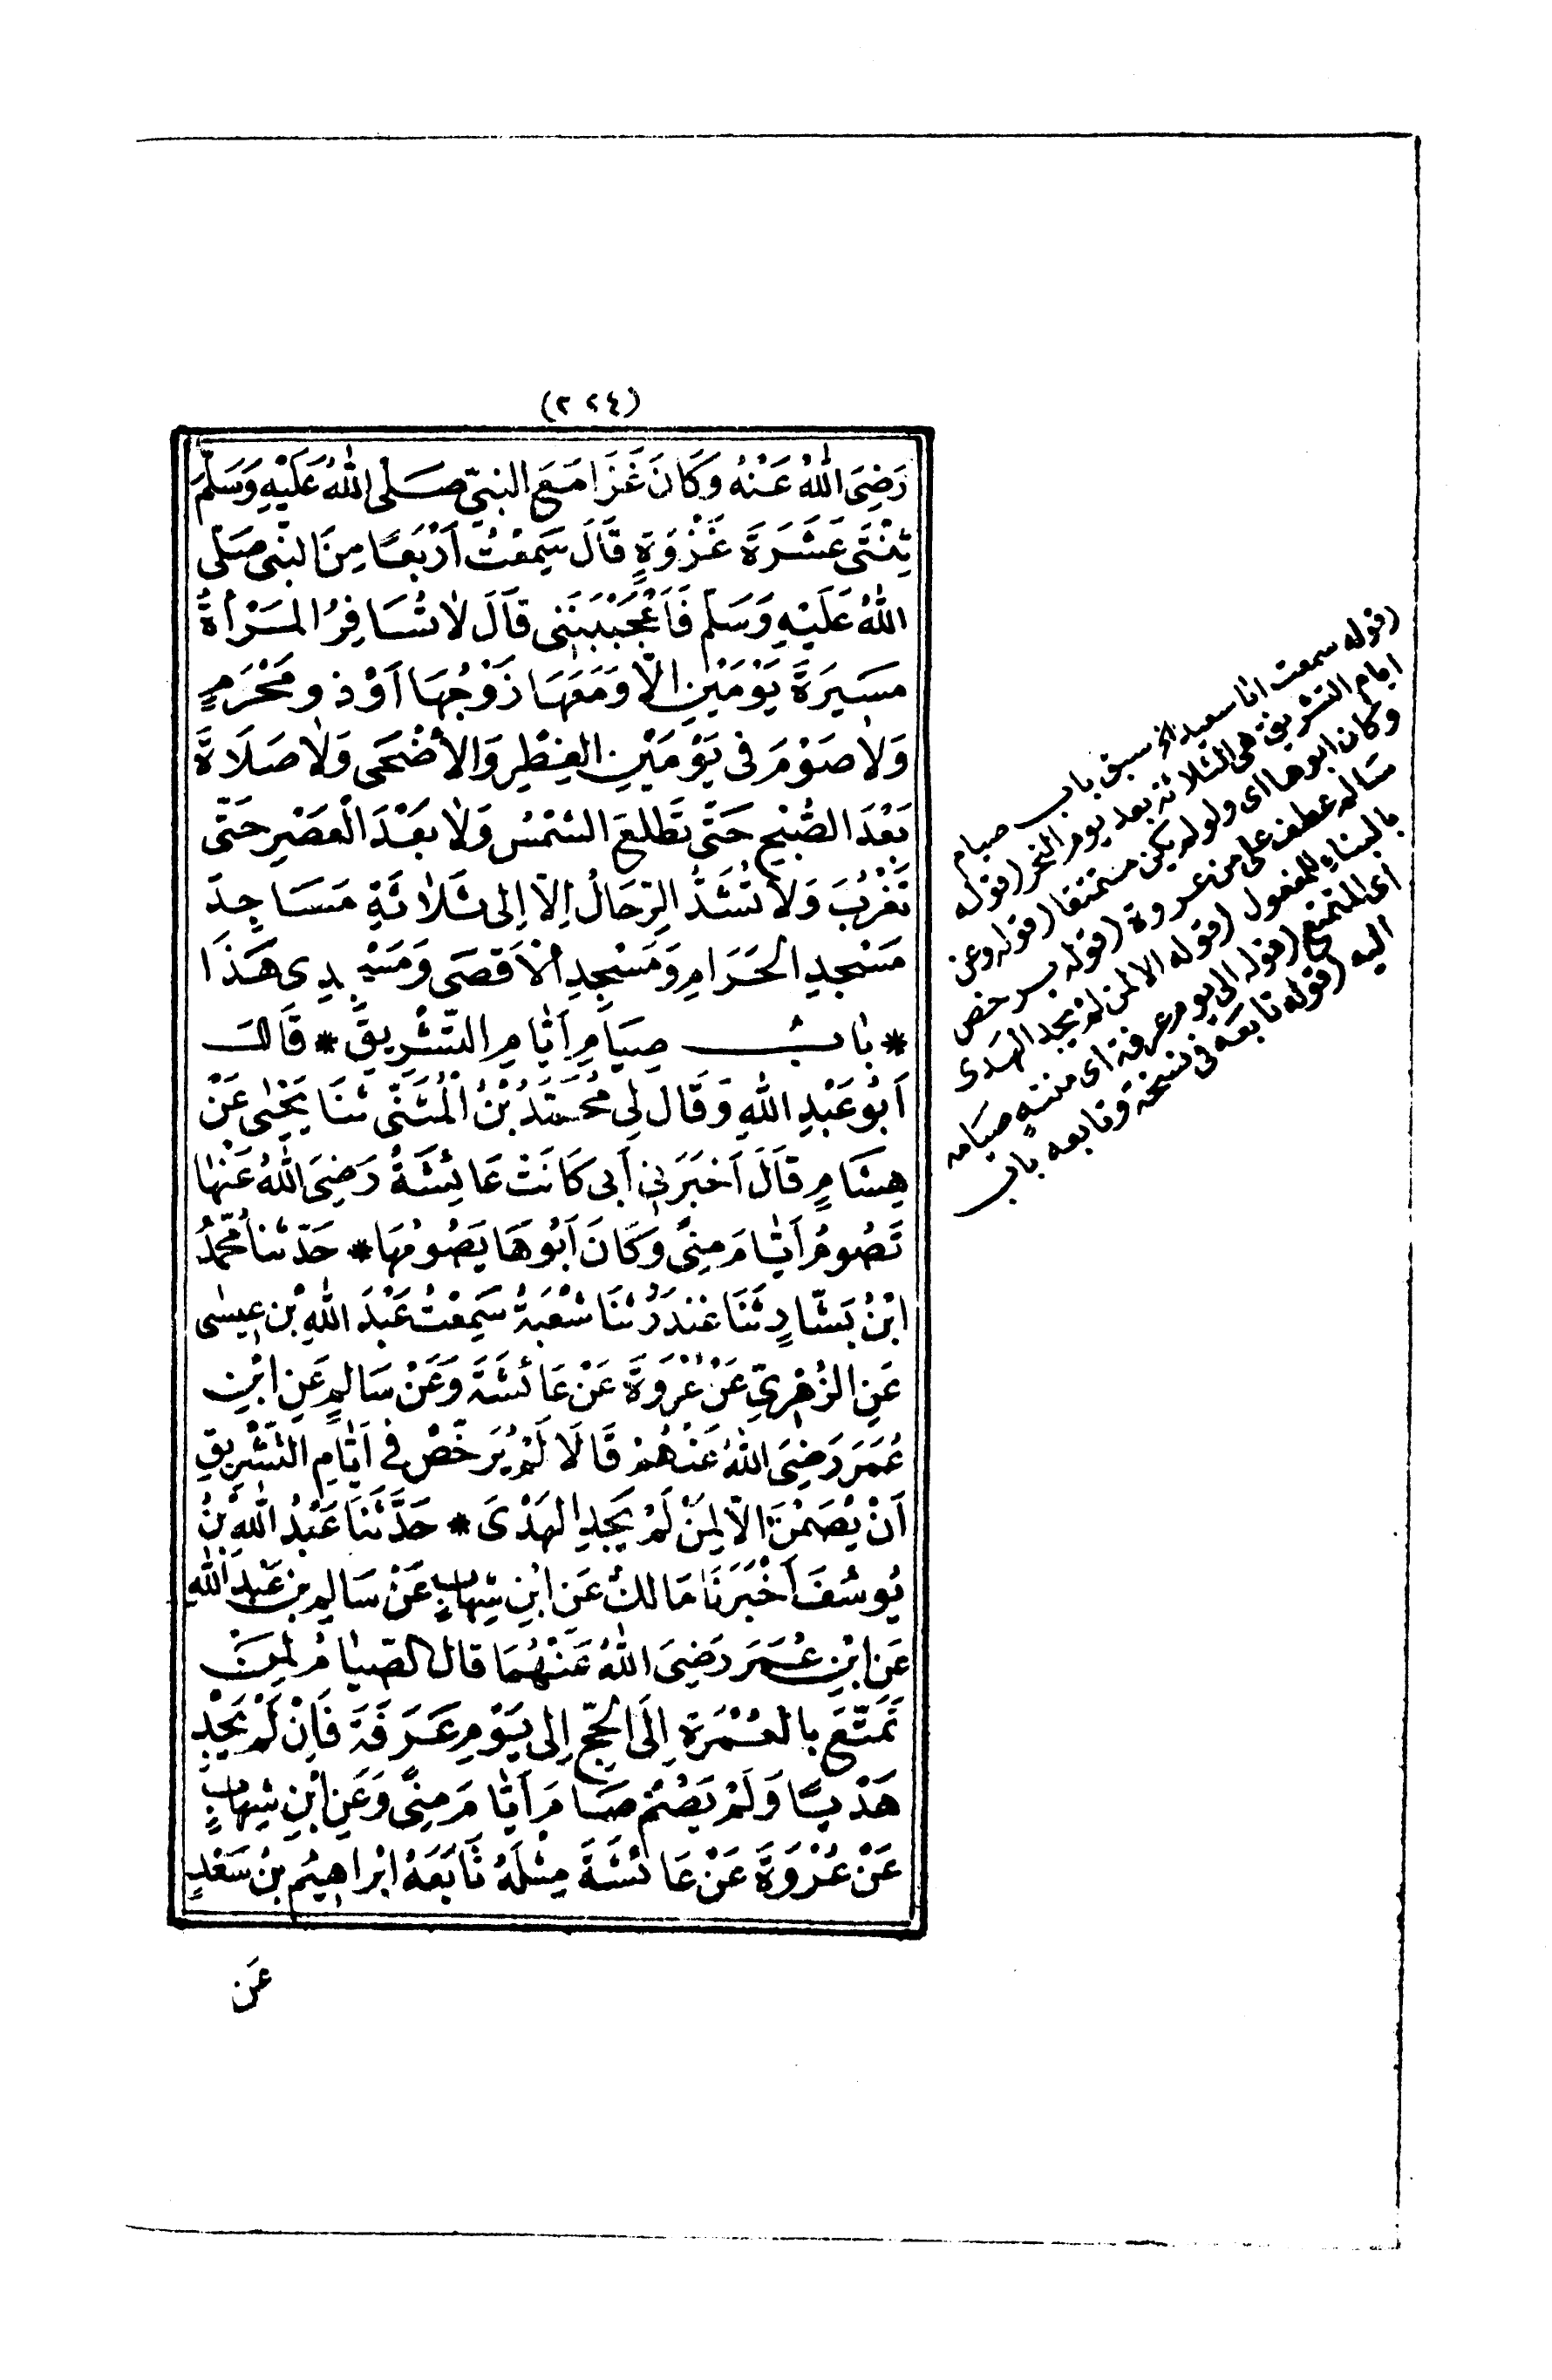 (٢٢٤)
رَضِيَ اللهُ عَنْهُ وَكَانَ غَزَا مَعَ النَّبِيِّ صَلَّى اللهُ عَلَيْهِ وَسَلَّمَ
ثِنْتَى عَشَرَةَ غَزْوَةٍ قَالَ سَمِعْتُ أَرْبَعًا مِنَ النَّبِيِّ صَلَّى
اللهُ عَلَيْهِ وَسَلَّمَ فَأَعْجَبْنَنِي قَالَ لَا تُسَافِرُ الْمَرْأَةُ
مَسِيرَةَ يَوْمَيْنِ إِلَّا وَمَعَهَا زَوْجُهَا أَوْ ذُو مَحْرَمٍ
وَلَا صَوْمَ فِي يَوْمَيْنِ الْفِطْرِ وَالْأَضْحَى وَلَا صَلَاةَ
بَعْدَ الصُّبْحِ حَتَّى تَطْلُعَ الشَّمْسُ وَلَا بَعْدَ الْعَصْرِ حَتَّى
تَغْرُبَ وَلَا تُشَدُّ الرِّحَالُ إِلَّا إِلَى ثَلَاثَةِ مَسَاجِدَ
مَسْجِدِ الْحَرَامِ وَمَسْجِدِ الْأَقْصَى وَمَسْجِدِى هَذَا
* بَابُ صِيَامِ أَيَّامِ التَّشْرِيقِ * قَالَ
أَبُو عَبْدِ اللهِ وَقَالَ لِي مُحَمَّدُ بْنُ الْمُثَنَّى ثَنَا يَحْيَى عَنْ
هِشَامٍ قَالَ أَخْبَرَنِي أَبِي كَانَتْ عَائِشَةُ رَضِيَ اللهُ عَنْهَا
تَصُومُ أَيَّامَ مِنًى وَكَانَ أَبُوهَا يَصُومُهَا * حَدَّثَنَا مُحَمَّدُ
ابْنُ بَشَّارٍ ثَنَا غُنْدَرٌ ثَنَا شُعْبَةُ سَمِعْتُ عَبْدَ اللهِ بْنَ عِيسَى
عَنِ الزُّهْرِيِّ عَنْ عُرْوَةَ عَنْ عَائِشَةَ وَعَنْ سَالِمٍ عَنِ ابْنِ
عُمَرَ رَضِيَ اللهُ عَنْهُمْ قَالَا لَمْ يُرَخَّصْ فِي أَيَّامِ التَّشْرِيقِ
أَنْ يُصَمْنَ إِلَّا لِمَنْ لَمْ يَجِدِ الْهَدْىَ * حَدَّثَنَا عَبْدُ اللهِ بْنُ
يُوسُفَ أَخْبَرَنَا مَالِكٌ عَنِ ابْنِ شِهَابٍ عَنْ سَالِمِ بْنِ عَبْدِ اللهِ
عَنِ ابْنِ عُمَرَ رَضِيَ اللهُ عَنْهُمَا قَالَ الصِّيَامُ لِمَنْ
تَمَتَّعَ بِالْعُمْرَةِ إِلَى الْحَجِّ إِلَى يَوْمِ عَرَفَةَ فَإِنْ لَمْ يَجِدْ
هَدْيًا وَلَمْ يَصُمْ صَامَ أَيَّامَ مِنًى وَعَنِ ابْنِ شِهَابٍ
عَنْ عُرْوَةَ عَنْ عَائِشَةَ مِثْلَهُ تَابَعَهُ إِبْرَاهِيمُ بْنُ سَعْدٍ
عَن
(قوله سمعت ابا سعيد الخ سبق باب صيام
ايام التشريق هى الثلاثة بعد يوم النحر (قوله
وكان ابوها اى ولو لم يكن متمتعا (قوله وعن
سالم عطف على من عروة (قوله يرخص
بالبناء للمفعول (قوله الا لمن لم يجد الهدى
اى المتمتع (قوله الى يوم عرفة اى منتهٍ صيامه
اليه (قوله تابعه فى نسخة وتابعه باب